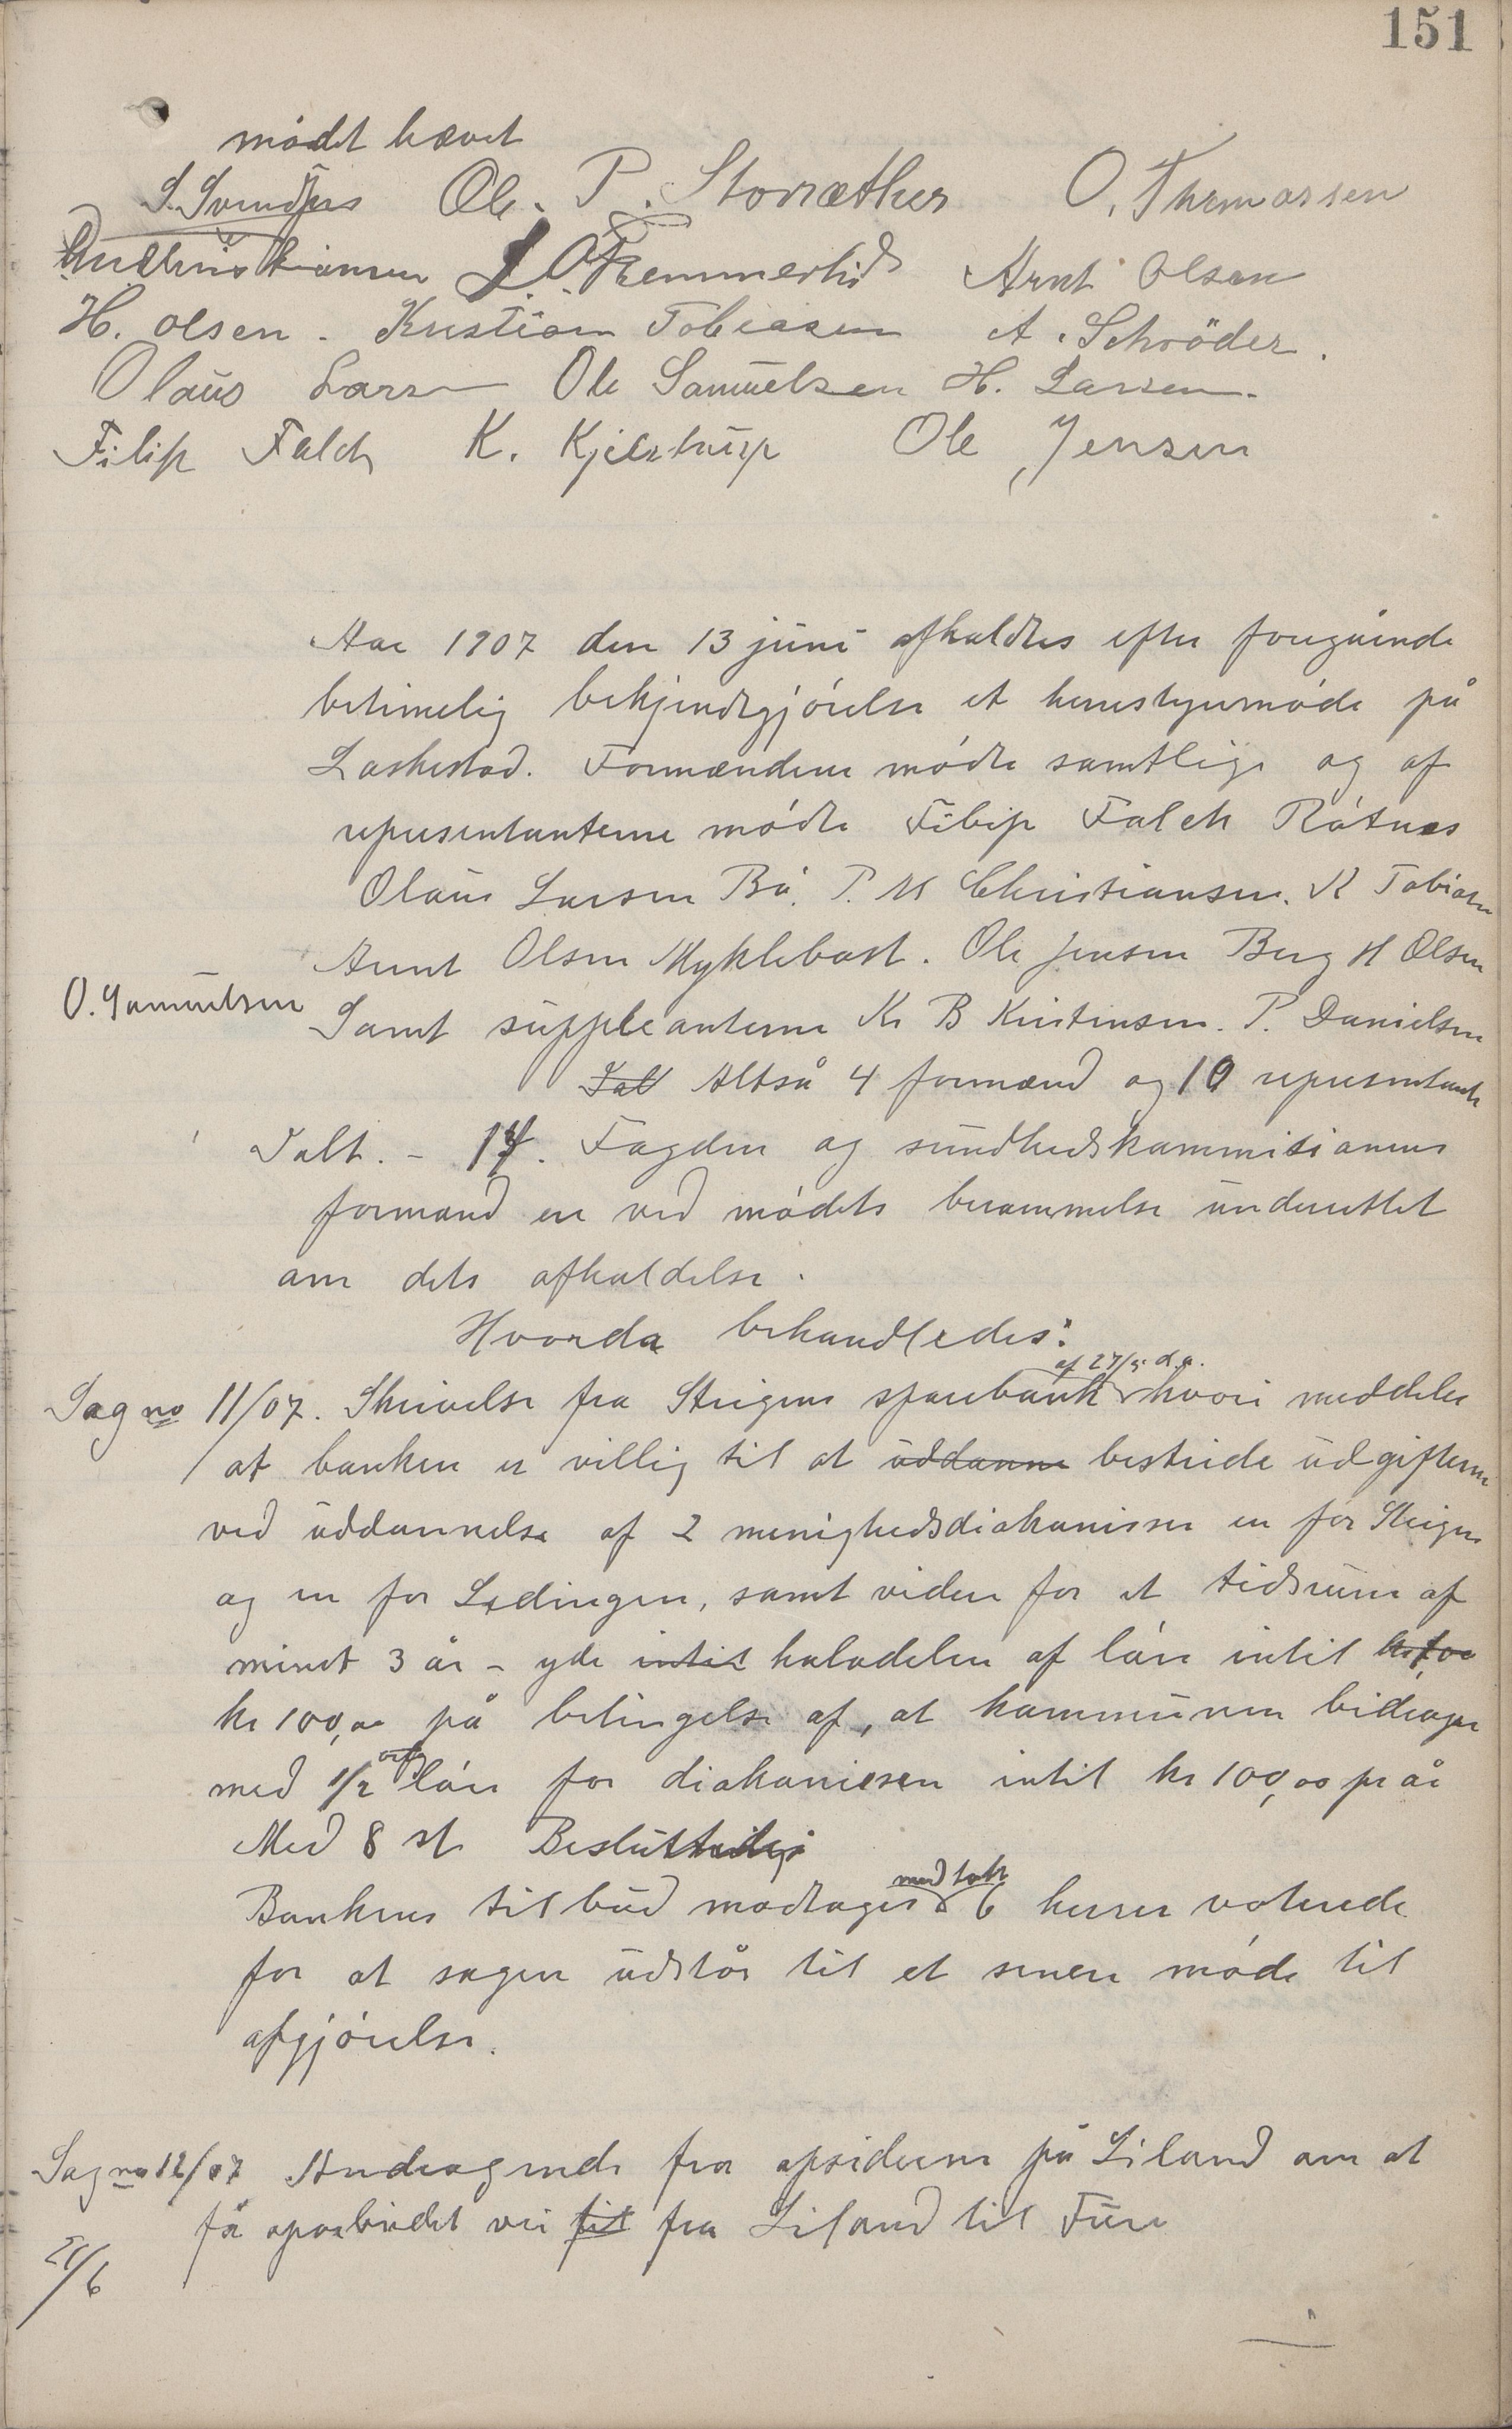 151
mødet hævet
S. Svendsen Ole. P. Storræther O. Thomassen
Christiansen L. O. Remmerlid Arnt Olsen
H. Olsen. Kristian Tobiasen A. Schröder.
Olaus Larsen Ole Samuelsen H. Larsen.
Filip Falch K. Kjelstrup Ole Jensen
Aar 1907 den 13 juni afholdtes efter foregående
betimelig bekjendtgjørelse et herrestyremøde på
Laskestad. Formændene mødte samtlige og af
repræsentanterne mødte Filip Falch Råtnes
Olaus Larsen Bø. P. M Christiansen. K Tobiasen
Arnt Olsen Myklebost. Ole Jensen Berg H Olsen
O. Samuelsen
Samt suppleanterne Kr B Kristensen. P. Danielsen
Ialt Altså 4 formænd og 10 repræsentanter
Ialt. - 14. Fogden og sundhedskommisionens
formand er ved mødets berammelse underrettet
om dets afholdelse.
Hvorda behandledes:
af 27/5 d.a.
Sag no 11/07. Skrivelse fra Steigens sparebank hvori meddeles
at banken er villig til at uddanne bestride udgifterne
ved uddannelse af 2 menighedsdiakonisser en for Steigen
og en for Lødingen, samt videre for et tidsrum af
mindst 3 år - yde intil halvdelen af løn intil
kr 100,00 på betingelse af, at kommunen bidrager
med 1/2 løn for diakonissen intil kr 100,00 pr år
Med 8 st Besluttedes
med tak
Bankens tilbud modtages 6 herrer voterede
for at sagen udstår til et senere møde til
afgjørelse.
Sag no 12/07 Andragende fra opsidderne på Liland om at
få oparbeidet vei til fra Liland til Fure
21/6